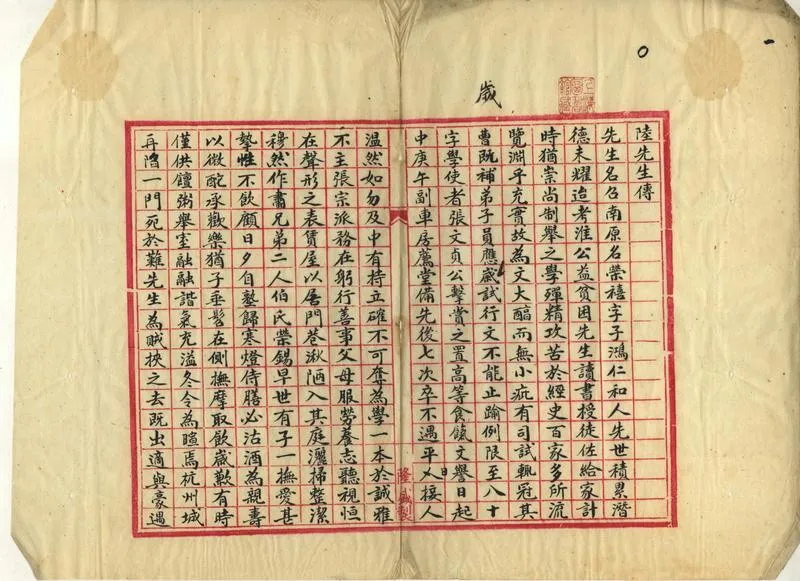 歲
陸先生傳
先生名召南原名榮禧字子鴻仁和人先世積累潛
德未耀迨考淮公益貧困先生讀書授徒佐給家計
時猶崇尚制舉之學殫精攻苦於經史百家多所流
覽淵乎充實故為文大醕而無小疵有司試輒冠其
曹既補弟子員應歲試行文不能止踰例限至八十
字學使者張文貞公擊賞之置高等食餼文譽日起
中庚午副車房薦堂備先後七次卒不遇平日接人
溫然如勿及中有持立確不可奪為學一本於誠雅
不主張宗派務在躬行善事父母服勞養志聽視恒
在聲形之表賃屋以居門巷湫陋入其庭灑掃整潔
穆然作肅兄弟二人伯氏榮錫早世有子一撫愛甚
摯性不飲顧日夕自塾歸寒燈侍膳必沽酒為親壽
以微酡承歡樂猶子垂髫在側撫摩取飲歲歉有時
僅供饘粥舉室融融諧氣充溢冬令為暄焉杭州城
再陷一門死於難先生為賊挾之去既出適與豪遇